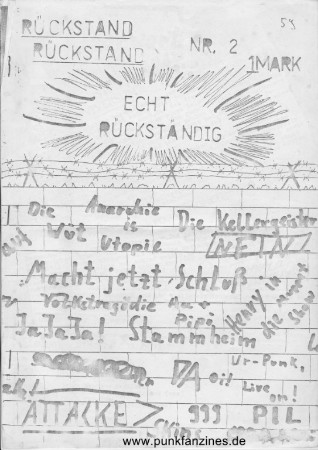 RÜCKSTAND
RÜCKSTAND
NR. 2
54
1MARK
ECHT
RÜCKSTÄNDIG
Die Wut
Anarchie is Utopie
Die Kellergeister
NEIN
Macht jetzt Schluß
Volkstragödie
Pipi
Henry in die
Show
JaJaJa! Stammheim
Ur-Punk,
oi! Live on!
ATTACKE
999 PIL
Skins
www.punkfanzines.de